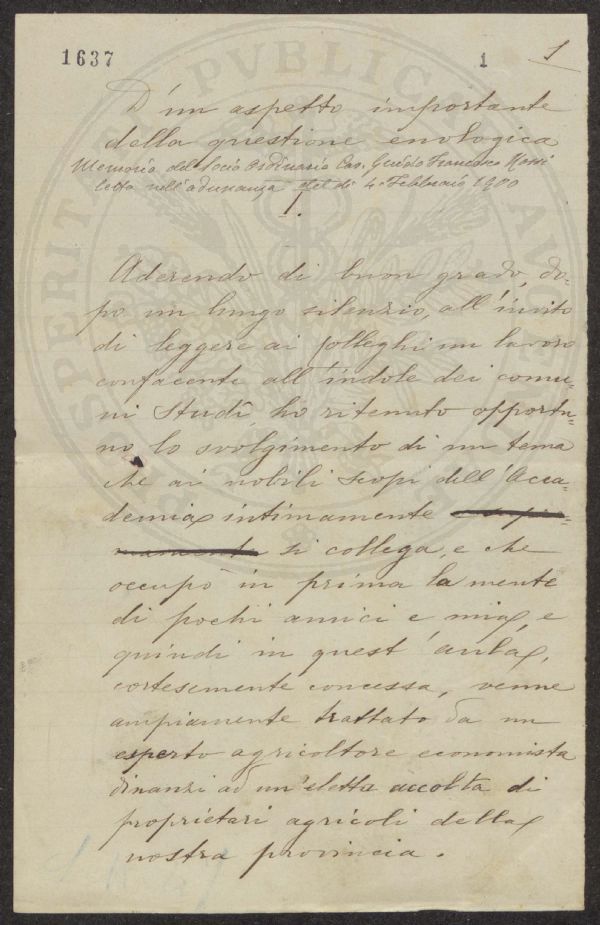 1637 1 1
D'un aspetto importante
della questione enologica
Memoria del Socio Ordinario Cav. Guido Francesco Rossi
letta nell'adunanza del dì 4 Febbraio 1900
I.
Aderendo di buon grado, do-
po un lungo silenzio, all'invito
di leggere ai Colleghi un lavoro
confacente all'indole dei comu-
ni studî, ho ritenuto opportu-
no lo svolgimento di un tema
che ai nobili scopi dell'Acca-
demia intimamente
si collega, e che
occupò in prima la mente
di pochi amici e mia, e
quindi in quest'aula,
cortesemente concessa, venne
ampiamente trattato da un
esperto agricoltore economista
dinanzi ad un'eletta accolta di
proprietari agricoli della
nostra provincia.
PROSPERITATI PVBLICAE AVGENDAE